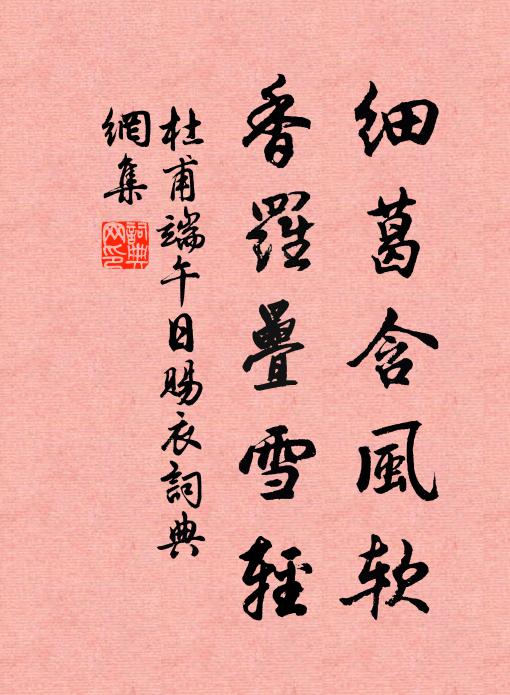 細葛含風軟
香羅疊雪輕
杜甫端午日賜衣詞典
網集
詞典
网印